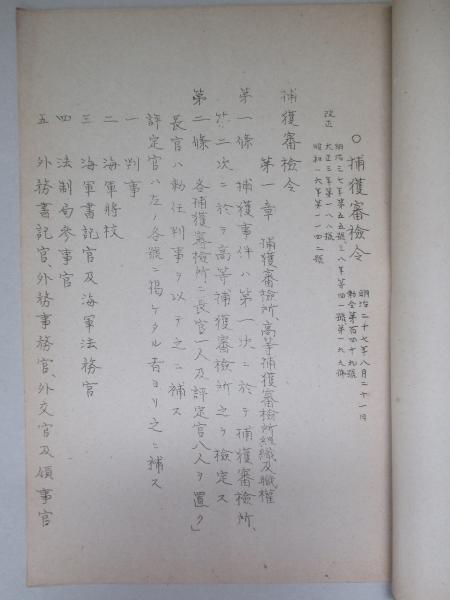 ○捕獲審檢令
明治二十七年八月二十一日
勅令第百四十九號
改正
明治三七年第五五號三八年第四一號第一九九號
大正三年第一八八號
昭和一六年第一一四二號
捕獲審檢令
第一章 捕獲審檢所、高等捕獲審檢所組織及職權
第一條 捕獲事件ハ第一次ニ於テ捕獲審檢所、
第二次ニ於テ高等捕獲審檢所之ヲ檢定ス
第二條 各捕獲審檢所ニ長官一人及評定官八人ヲ置ク」
長官ハ勅任判事ヲ以テ之ニ補ス
評定官ハ左ノ各號ニ揭ケタル者ヨリ之ニ補ス
一 判事
二 海軍將校
三 海軍書記官及海軍法務官
四 法制局參事官
五 外務書記官、外務事務官、外交官及領事官